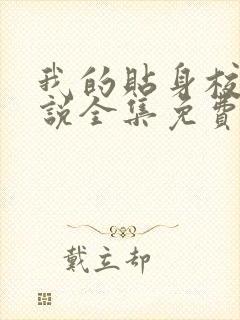 我的貼身校
說全集免費
戴立却